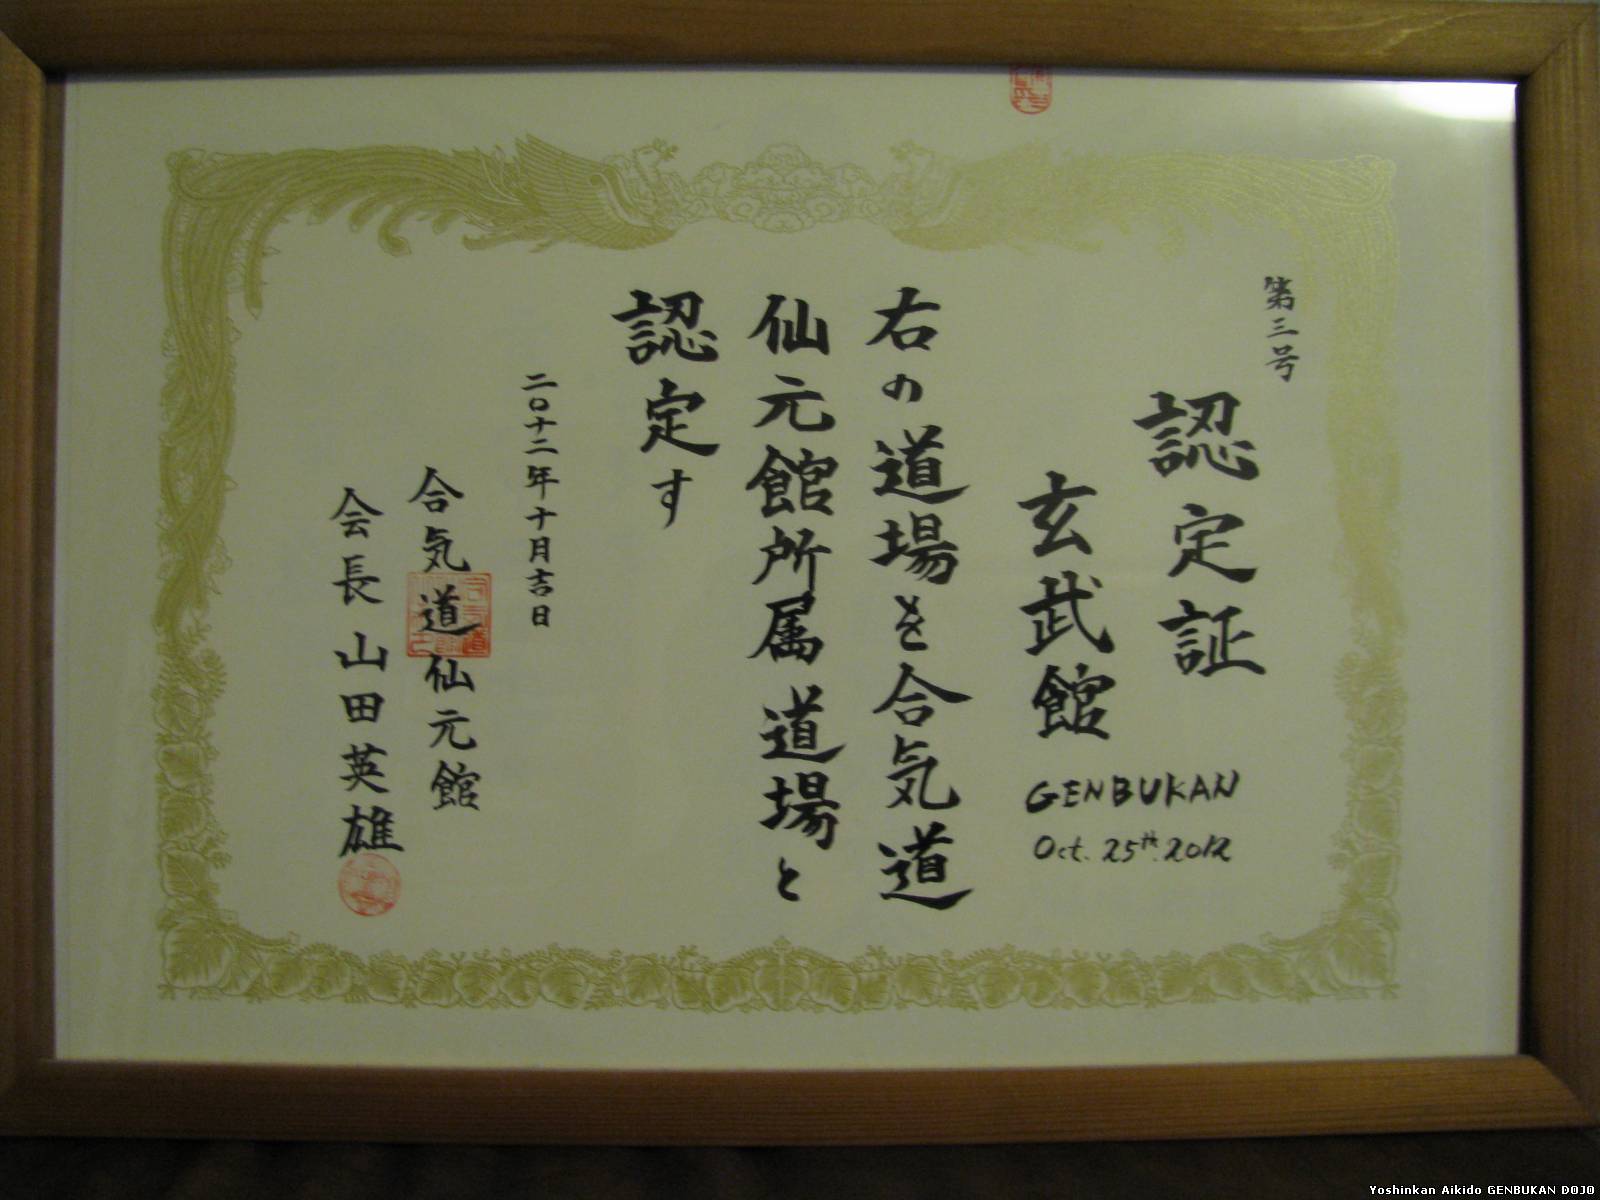 第三号
認定証
玄武館
GENBUKAN
Oct. 25th. 2012
右の道場を合気道
仙元館所属道場と
認定す
二〇十二年十月吉日
合気道仙元館
会長 山田英雄
Yoshinkan Aikido GENBUKAN DOJO